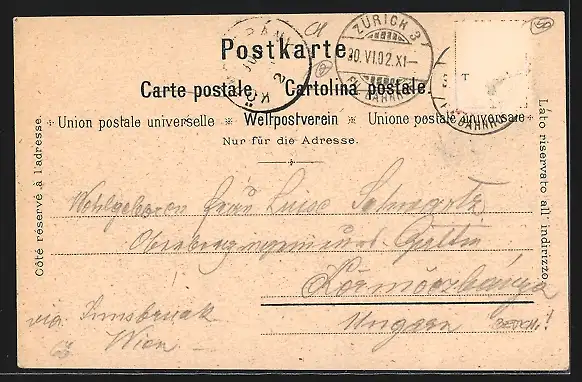 Postkarte.
Carte postale. Cartolina postale.
Union postale universelle * Weltpostverein * Unione postale universale
Nur für die Adresse.
Côté réservé à l'adresse.
Lato riservato all' indirizzo.
ZÜRICH 3
30.VI.02.XI-
BAHNH
BAHNH
T
Wohlgeboren Frau Luise Schwartz
Körmöczbánya
via Innsbruck
Ungarn
Wien